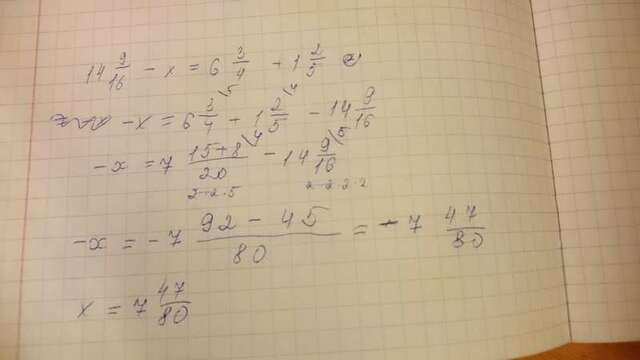 14 9/16 - x = 6 3/4 + 1 2/5
-x = 6 3/4 \5 + 1 2/5 \4 - 14 9/16
-x = 7 (15+8)/20 \4 - 14 9/16 \5
2·2·5 2·2·2·2
-x = -7 (92 - 45)/80 = -7 47/80
x = 7 47/80